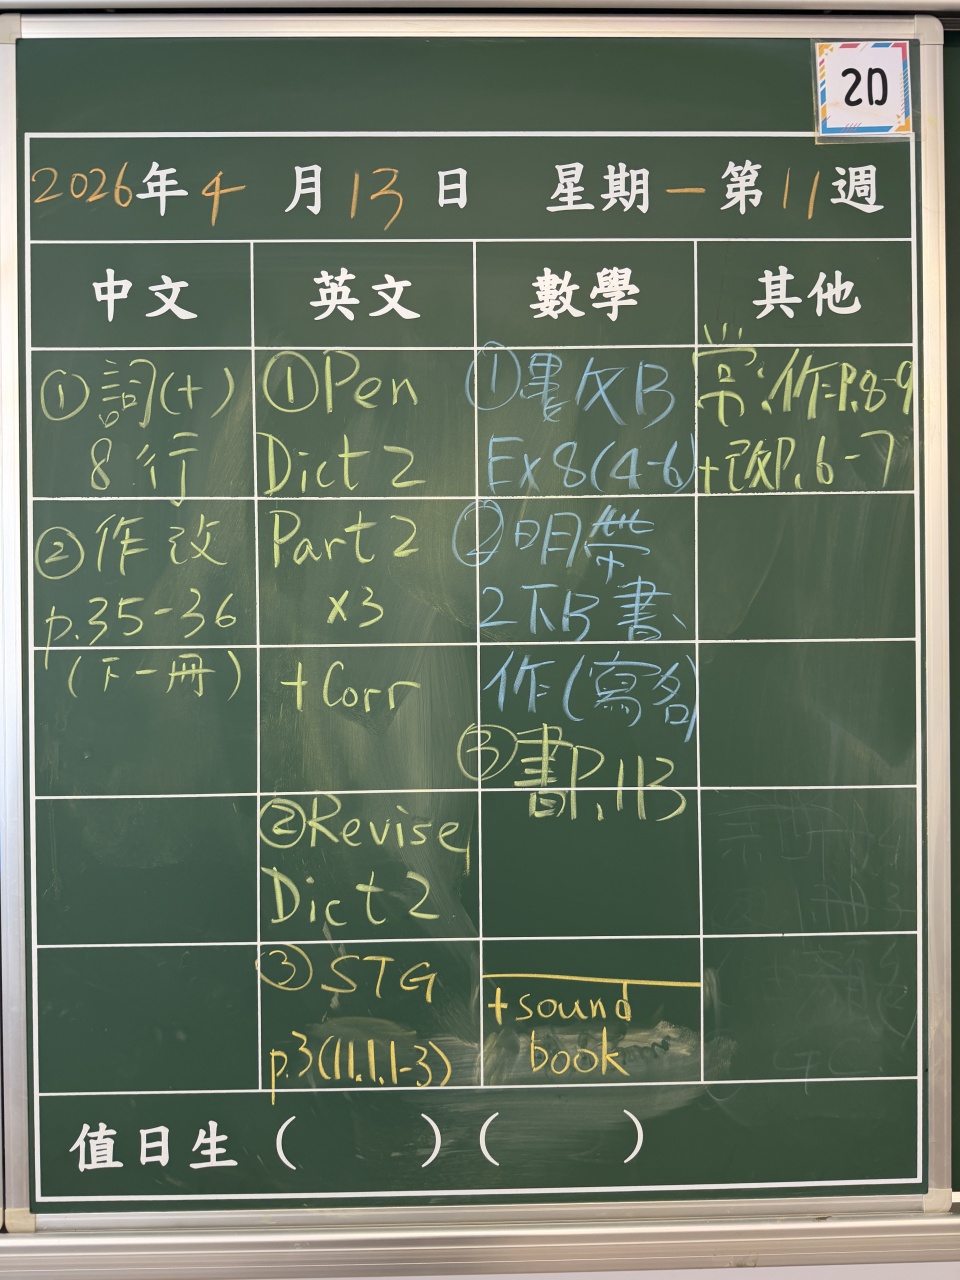 2D
2026年4月13日 星期一 第11週
中文
英文
數學
其他
①詞(十)
8行
②作改
p.35-36
(下一冊)
①Pen
Dict 2
Part 2
x3
+Corr
②Revise
Dict 2
③STG
p.3(11.1.1-3)
①數B
Ex 8(4-6)
②明帶
2下B書、
作(寫名)
③書P.113
+sound
book
常:作P.8-9
+改P.6-7
值日生( )( )